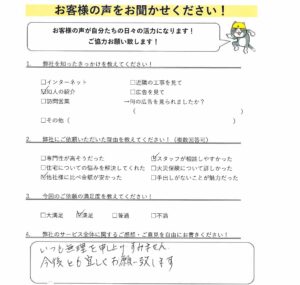 お客様の声をお聞かせください！
お客様の声が自分たちの日々の活力になります！
ご協力お願い致します！
1. 弊社を知ったきっかけを教えてください！
□インターネット □近隣の工事を見て
☑知人の紹介 □広告を見て
□訪問営業 →何の広告を見られましたか？
( )
□その他( )
2. 弊社にご依頼いただいた理由を教えてください！（複数回答可）
□専門性が高そうだった ☑スタッフが相談しやすかった
□住宅についての悩みを解決してくれた □火災保険について詳しかった
☑他社様に比べ金額が安かった □手出しがないことが魅力だった
3. 今回のご依頼の満足度を教えてください！
□大満足 ☑満足 □普通 □不満
4. 弊社のサービス全体に関するご感想・ご意見を自由にお書きください！
いつも無理を申し上げすみません
今後とも宜しくお願い致します